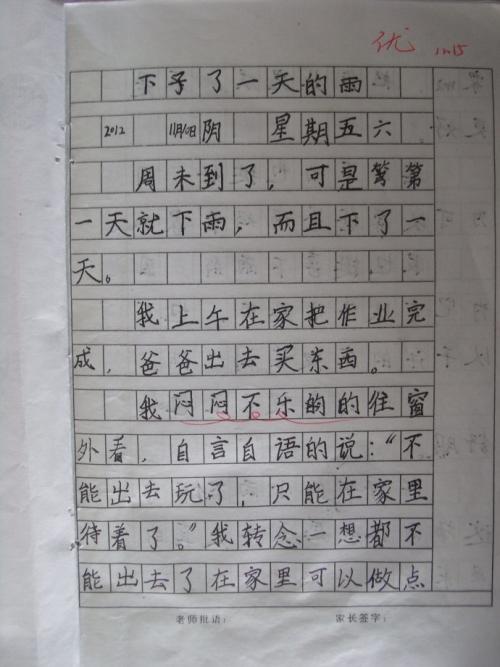 优 11.15
下子了一天的雨
2012 11月10日阴 星期五六
周未到了，可是第
一天就下雨，而且下了一
天。
我上午在家把作业完
成，爸爸出去买东西。
我闷闷不乐的的往窗
外看，自言自语的说：“不
能出去玩了，只能在家里
待着了。”我转念一想都不
能出去了在家里可以做点
老师批语： 家长签字：